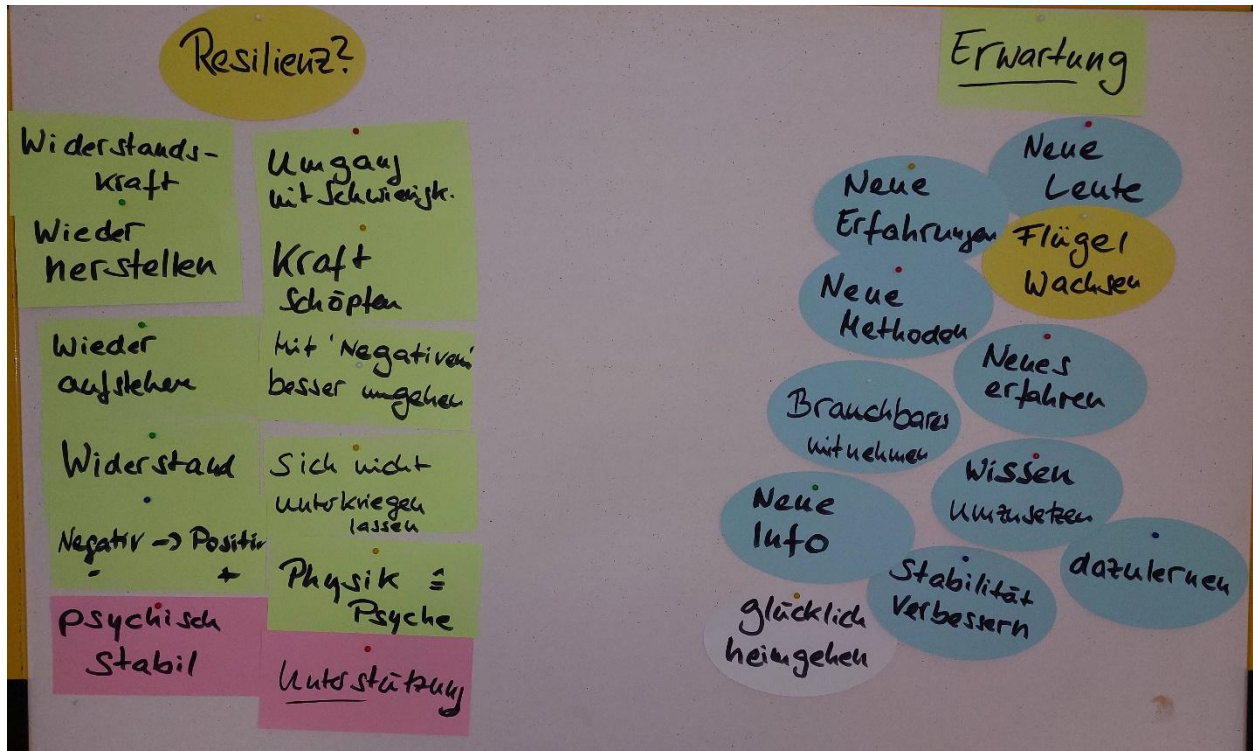 Resilienz?
Widerstands-
kraft
Wieder
herstellen
Wieder
aufstehen
Widerstand
Negativ -> Positiv
- +
psychisch
Stabil
Umgang
mit Schwierigk.
Kraft
Schöpfen
Mit 'Negativem'
besser umgehen
Sich nicht
unterkriegen
lassen
Physik ≙
Psyche
Unterstützung
Erwartung
Neue
Leute
Neue
Erfahrungen
Flügel
Wachsen
Neue
Methoden
Neues
erfahren
Brauchbares
mitnehmen
Wissen
umzusetzen
Neue
Info
dazulernen
Stabilität
Verbessern
glücklich
heimgehen